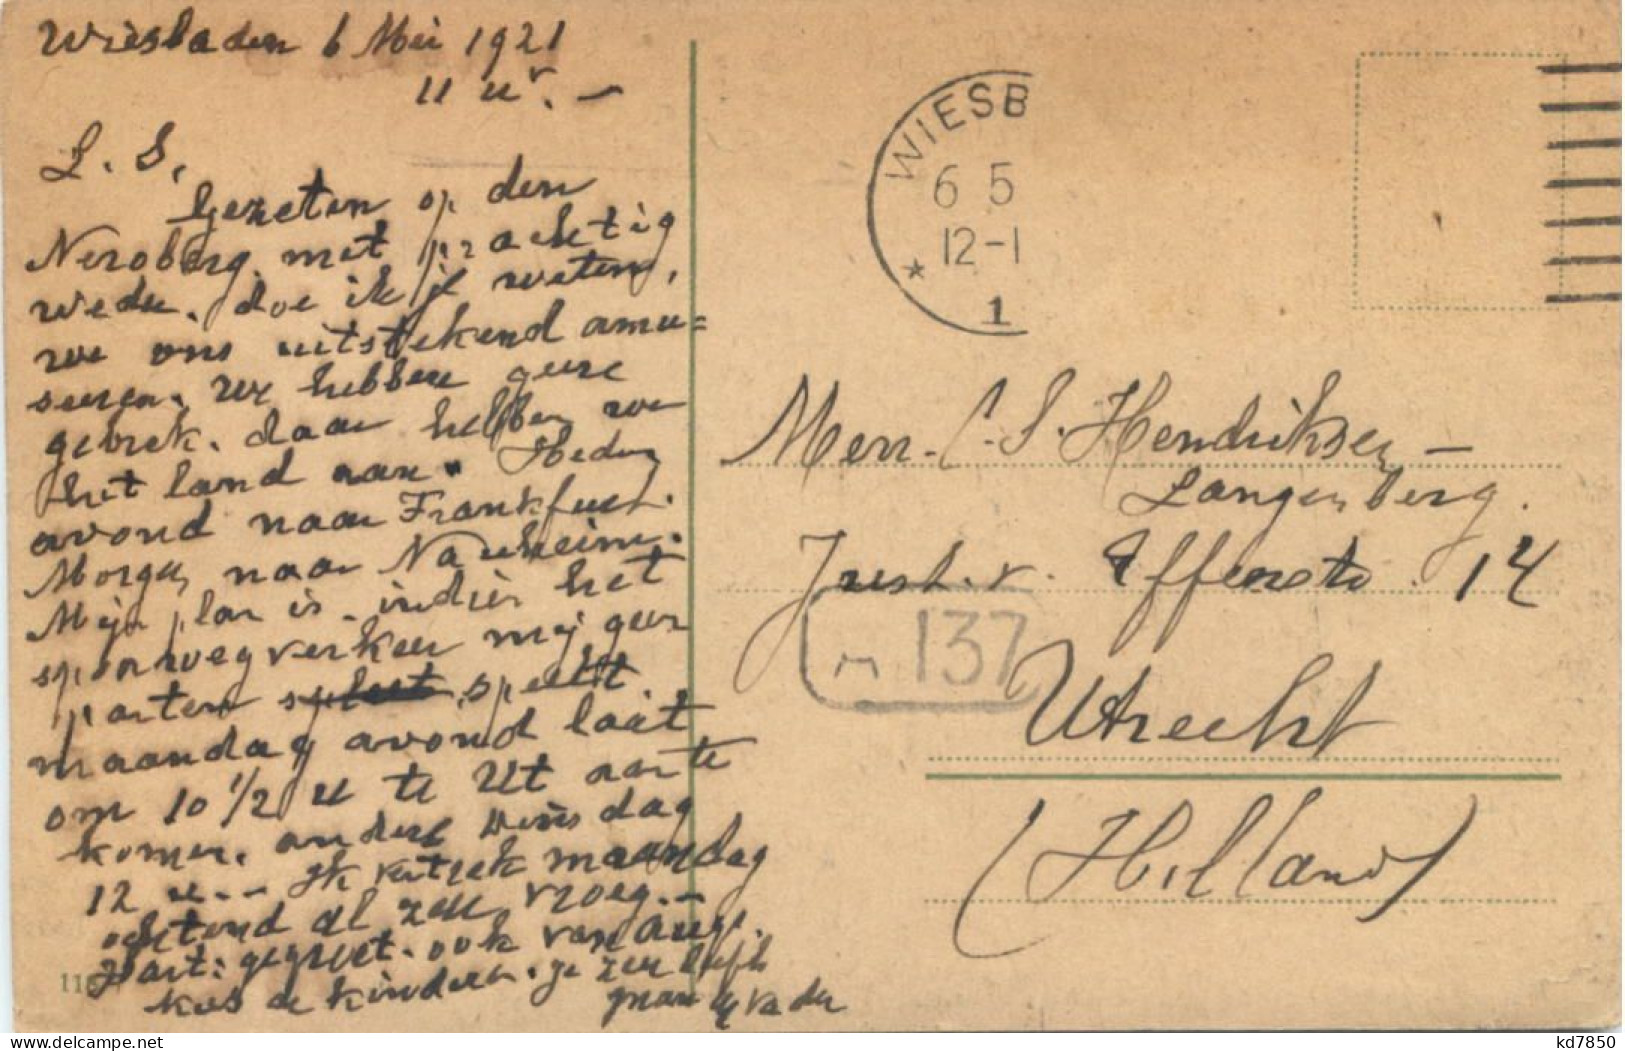 Wiesbaden 6 Mei 1921
11 ur. –
L. S,
Gezeten op den
Neroberg met prachtig
weder, doe ik je weten,
we ons uitstekend amu=
seeren. We hebben geene
gebrek. daar hebben we
het land aan. Heden
avond naar Frankfurt.
Morgen naar Nauheim.
Mijn plan is, indien het
spoorwegverkeer mij geen
parten speelt
maandag avond laat
om 10 1/2 u te Ut aan te
komen. anders
12 u.. – Ik vertrek maandag
ochtend al zeer vroeg. –
Hart: gegroet. ook van Aug.
kus de kinderen.
man & vader
118
WIESB
6 5
12-1
* 1
Men. C. S. Hendriksen –
Langenberg.
Just. v. Effenstr. 14
m 137
Utrecht
(Holland)
kd7850